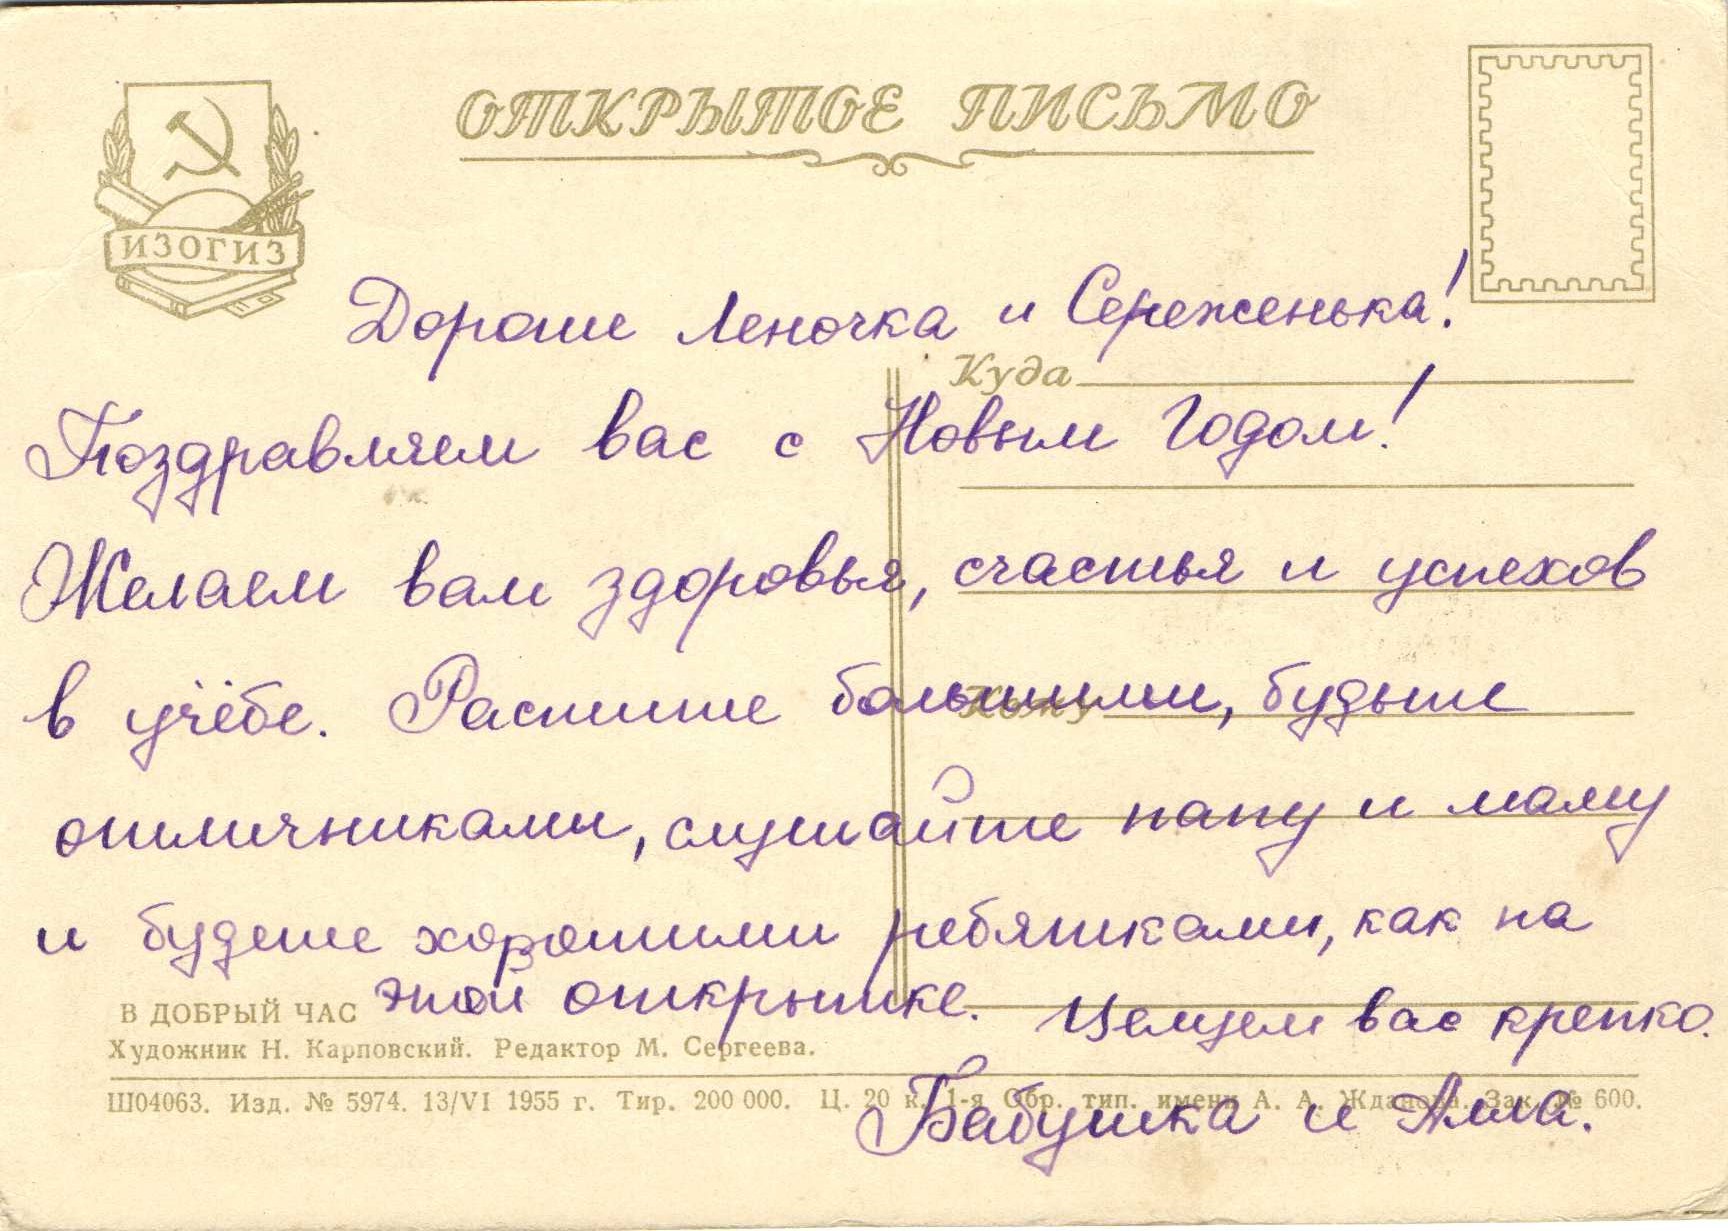 ОТКРЫТОЕ ПИСЬМО
ИЗОГИЗ
Дорогие Леночка и Сереженька!
Куда
Поздравляем вас с Новым Годом!
Желаем вам здоровья, счастья и успехов
в учёбе. Растите большими, будьте
Кому
отличниками, слушайте папу и маму
и будете хорошими ребятками, как на
этой открытке. Целуем вас крепко.
Бабушка и Алла.
В ДОБРЫЙ ЧАС
Художник Н. Карповский. Редактор М. Сергеева.
Ш04063. Изд. № 5974. 13/VI 1955 г. Тир. 200 000. Ц. 20 к. 1-я Обр. тип. имени А. А. Жданова. Зак. № 600.